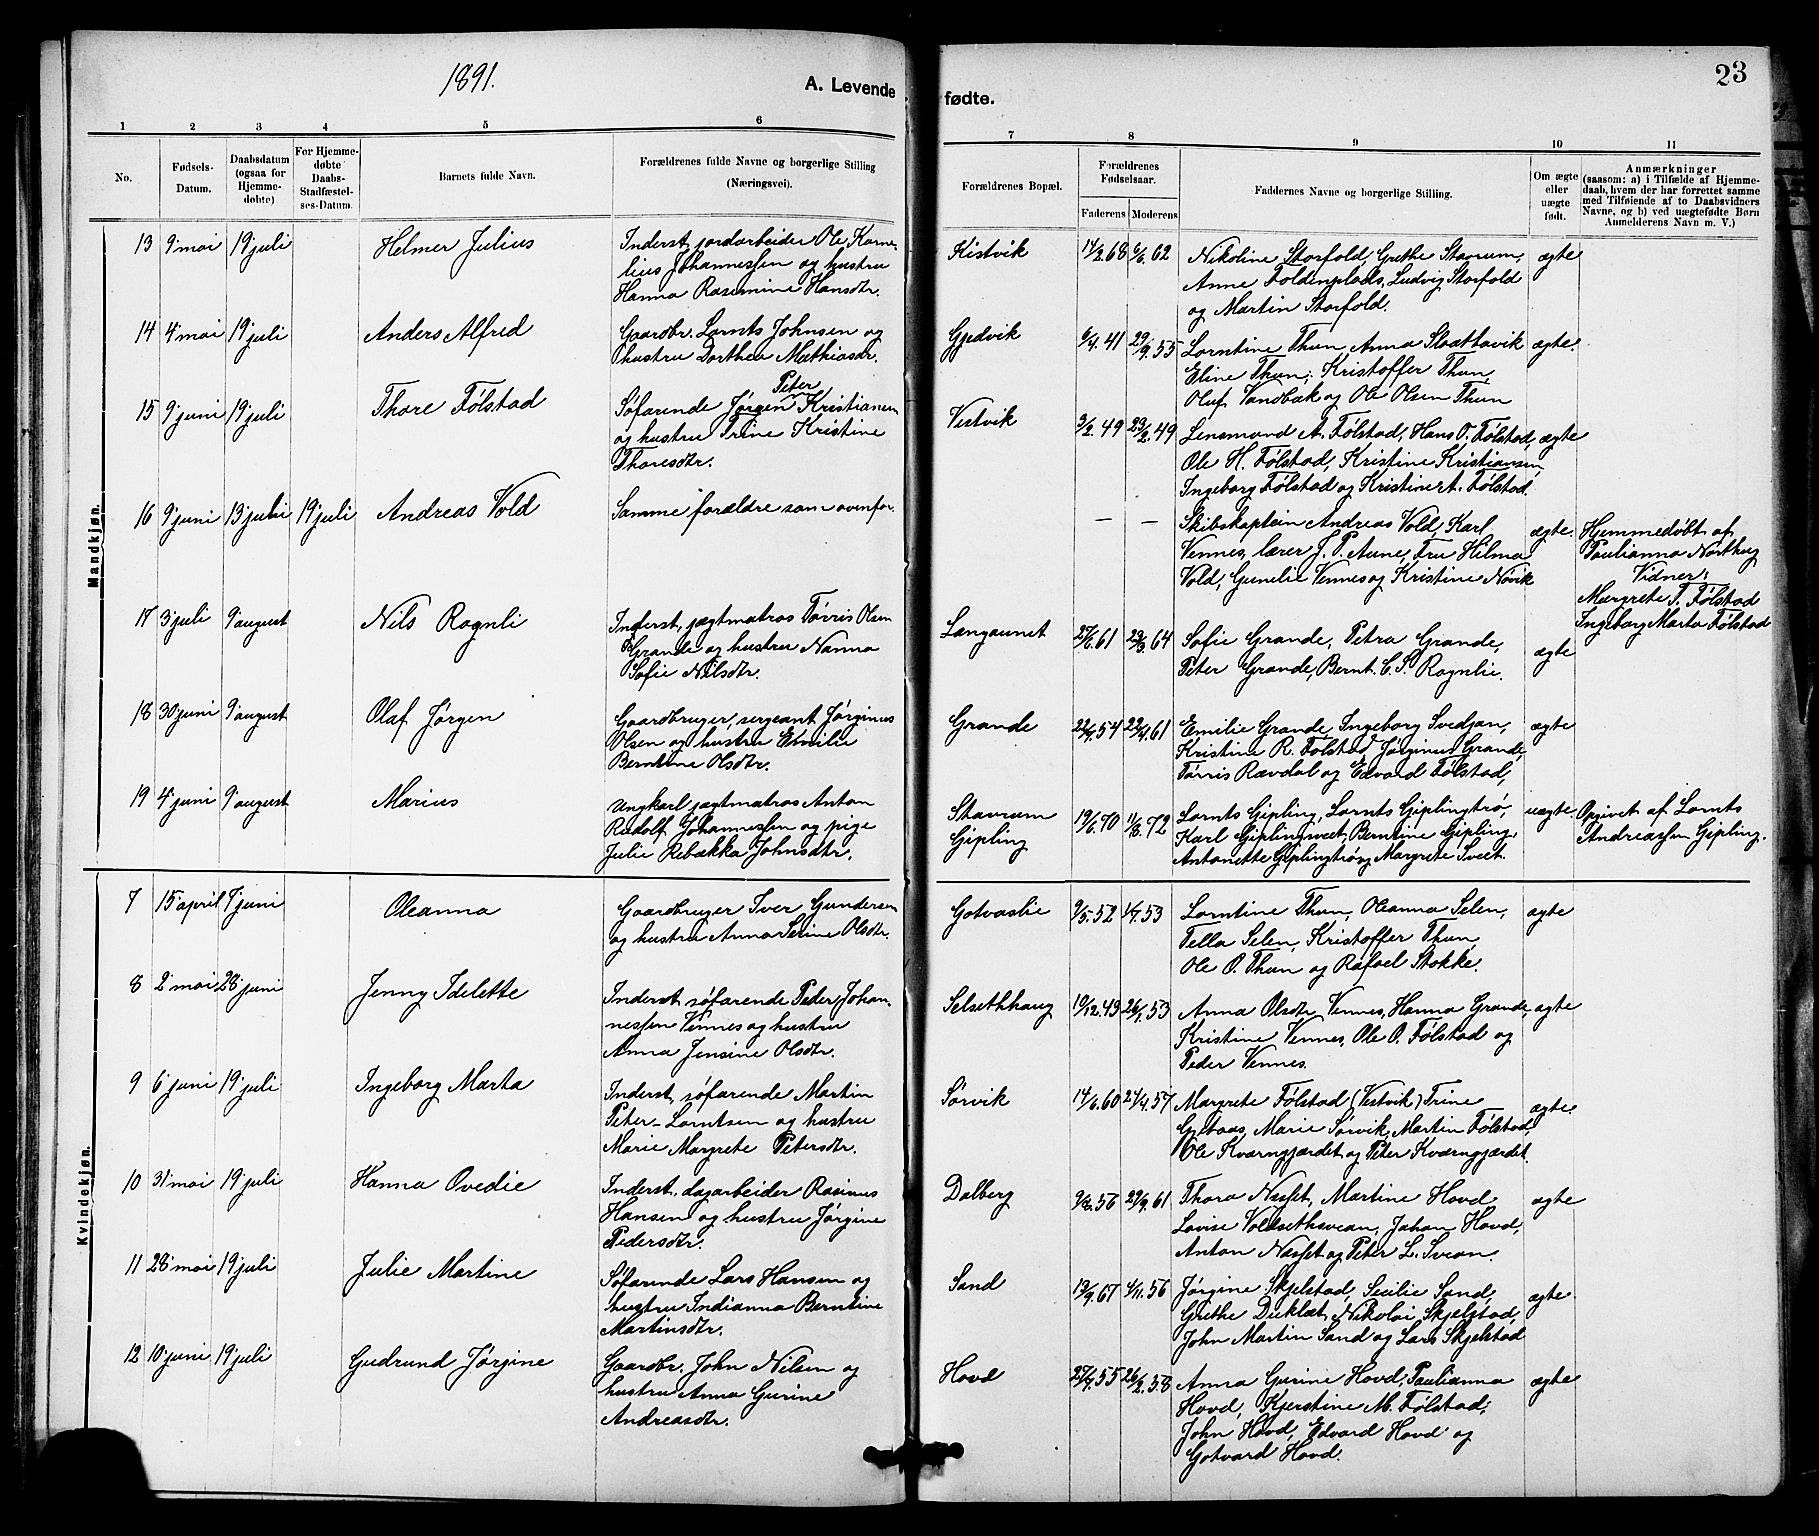 1891.
A. Levende
fødte.
23
1 2 3 4 5 6 7 8 9 10 11
No.
Fødsels-
Datum.
Daabsdatum
(ogsaa for
Hjemme-
døbte)
For Hjemme-
døbte
Daabs-
Stadfæstel-
ses-Datum.
Barnets fulde Navn.
Forældrenes fulde Navne og borgerlige Stilling
(Næringsvei).
Forældrenes Bopæl.
Forældrenes
Fødselsaar.
Faderens Moderens
Faddernes Navne og borgerlige Stilling.
Om ægte
eller
uægte
født.
Anmærkninger
(saasom: a) i Tilfælde af Hjemme-
daab, hvem der har forrettet samme
med Tilføiende af to Daabsvidners
Navne, og b) ved uægtefødte Børn
Anmelderens Navn m. V.)
Mandkjøn.
13 9' mai 19' juli Helmer Julius
Inderst, jordarbeider Ole Korne-
lius Johannessen og hustru
Hanna Rasmine Hansdtr.
Kistvik 14/2.68 6/6.62
Nikoline Storfold, Grethe Stavrum,
Anne Foldinplads, Ludvig Storfold
og Martin Storfold.
ægte
14 4' mai 19' juli Anders Alfred
Gaardbr. Lornts Johnsen og
hustru Dorthea Mathiasdr.
Gjedvik 6/4.41 29/9.55
Lorntine Thun, Anna Slaattavik
Eline Thun, Kristoffer Thun,
Oluf Vandbæk og Ole Olsen Thun
ægte.
15 9' juni 19' juli Thore Følstad
Peter
Søfarende Jørgen Kristiansen
og hustru Trine Kristine
Thoresdtr.
Vestvik 3/2.49 23/2.49
Lensmand A. Følstad, Hans O. Følstad,
Ole H. Følstad, Kristine Kristiansen,
Ingeborg Følstad og Kristine t. Følstad.
ægte
16 9' juni 13' juli 19' juli Andreas Vold
Samme forældre som ovenfor.
— —
Skibskaptein Andreas Vold, Karl
Vennes, lærer J. P. Aune, Fru Hilma
Vold, Gunelie Vennes og Kristine Növik
ægte.
Hjemmedøbt af
Paulianna Northug
Vidner:
Margrete T. Følstad
Ingeborg Marta Følstad
17 3' juli 9' august Nils Rognli
Inderst, jægtmatros Tørris Olsen
Grande og hustru Nanna
Sofie Nilsdtr.
Langaunet 27/6.61 23/3.64
Sofie Grande, Petra Grande,
Peter Grande, Bernt C. S. Rognlie.
ægte
18 30' juni 9' august Olaf Jørgen
Gaardbruger, sergeant Jørginus
Olsen og hustru Emilie
Berntine Olsdtr.
Grande 22/4.54 22/4.61
Emilie Grande, Ingeborg Svedjan,
Kristine R. Følstad, Jørginus Grande,
Tørris Rævdal og Edvard Følstad,
ægte
19 4' juni 9' august Marius
Ungkarl jægtmatros Anton
Rudolf Johannessen og pige
Julie Rebækka Johnsdtr.
Stavrum
Gipling
19/6.70 11/8.72
Lornts Gipling, Lornts Giplingtrø,
Karl Giplingsvet, Berntine Gipling,
Antonette Giplingtrø og Margrete Sveet.
uægte.
Opgivet af Lornts
Andreassen Gipling.
Kvindekjøn.
7 15' april 7' juni Oleanna
Gaardbruger Iver Gundersen
og hustru Anna Serine Olsdtr.
Gotvaslie 9/5.52 1/7.53
Lorntine Thun, Oleanna Selen,
Tella Selen, Kristoffer Thun,
Ole O. Thun og Rafael Stokke.
ægte
8 2' mai 28' juni Jenny Idelette
Inderst, søfarende Peder Johan-
nessen Vennes og hustru
Anna Jensine Olsdtr.
Selsethhaug 19/12.49 26/1.53
Anna Olsdtr Vennes, Hanna Grande,
Kristine Vennes, Ole O. Følstad og
Peder Vennes.
ægte
9 6' juni 19' juli Ingeborg Marta
Inderst, søfarende Martin
Peter Lorntsen og hustru
Marie Margrete Petersdtr.
Sørvik 14/6.60 24/4.57
Margrete Følstad (Vestvik) Trine
Gilaas, Marie Sørvik, Martin Følstad,
Ole Kværngjærdet og Peter Kværngjærdet.
ægte.
10 31' mai 19' juli Hanna Ovedie
Inderst, dagarbeider Rasinus
Hansen og hustru Jørgine
Pedersdtr.
Dalberg 9/6.56 29/9.61
Thora Næsset, Martine Hovd
Lovise Voldsethsvean, Johan Hovd,
Anton Næsset og Peter L. Svean.
ægte
11 28' mai 19' juli Julie Martine
Søfarende Lars Hansen og
hustru Indianna Berntine
Martinsdtr.
Sand 13/9.67 4/11.56
Jørgine Skjelstad, Secilie Sand,
Grethe Duklæt, Nikolai Skjelstad,
John Martin Sand og Lars Skjelstad
ægte
12 10' juni 19' juli Gudrund Jørgine
Gaardbr. John Nilsen og
hustru Anna Gurine
Andreasdtr.
Hovd 27/4.55 26/2.58
Anna Gurine Hovd, Paulianna
Hovd, Kjerstine M. Følstad,
John Hovd, Edvard Hovd og
Gotvard Hovd.
ægte